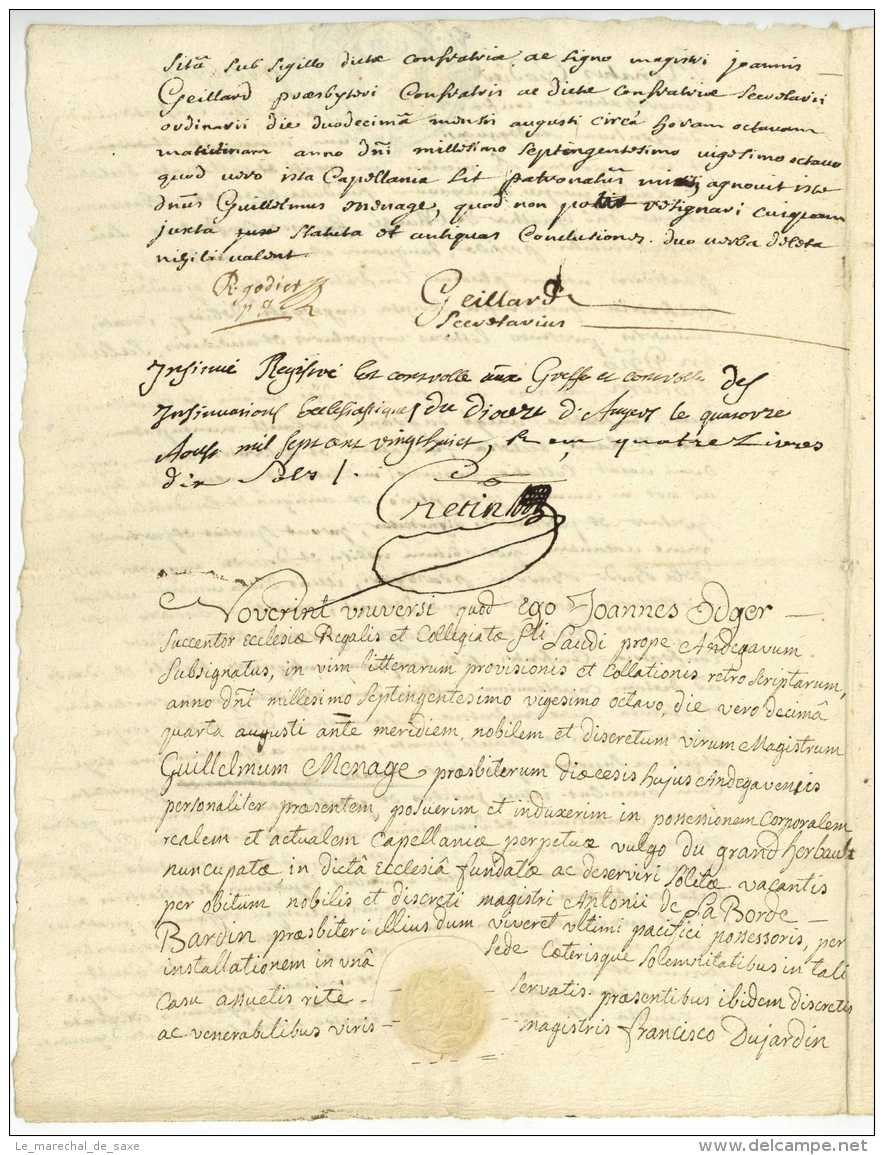 sitâ sub sigillo dictæ confratriæ ac signo magistri joannis
Geillard præsbyteri Confratris ac dictæ confratriæ Secretarii
ordinarii die duodecimâ mensis augusti circâ horam octavam
matutinam anno dñi millesimo septingentesimo vigesimo octavo
quod vero ista Capellania sit patronatûs agnovit iste
dnus Guillelmus Menage, quod non resignari cuiquam
juxta statuta et antiquas Conclusiones. duo verba deleta
nihil valent
R. godier
Geillard
Secretarius
Insinué Registré et controllé aux Greffe et controlle des
Insinuations Ecclesiastiques du diocese d'Angers le quatorze
Aoust mil sept cent vingt huict, quatre Livres
dix Sols
Cretin
Noverint universi quod ego Joannes Odger
Succentor Ecclesiæ Regalis et Collegiatæ Sti Laudi prope Andegavum
Subsignatus, in vim litterarum provisionis et Collationis retro scriptarum,
anno dñi millesimo septingentesimo vigesimo octavo, die vero decimâ
quarta augusti ante meridiem, nobilem et discretum virum Magistrum
Guillelmum Menage præsbiterum diœcesis hujus Andegavensis
personaliter præsentem, posuerim et induxerim in possessionem corporalem
realem et actualem Capellaniæ perpetuæ vulgo du grand herbault
nuncupatæ in dictâ Ecclesiâ fundatæ ac deserviri solitæ vacantis
per obitum nobilis et discreti magistri Antonii de La Borde
Bardin præsbiteri illius dum viveret ultimi pacifici possessoris, per
installationem in unâ sede Cæterisque solemnitatibus in tali
casu assuetis ritè servatis. præsentibus ibidem discretis
ac venerabilibus viris magistris Francisco Dujardin
Le_marechal_de_saxe
delcampe.net